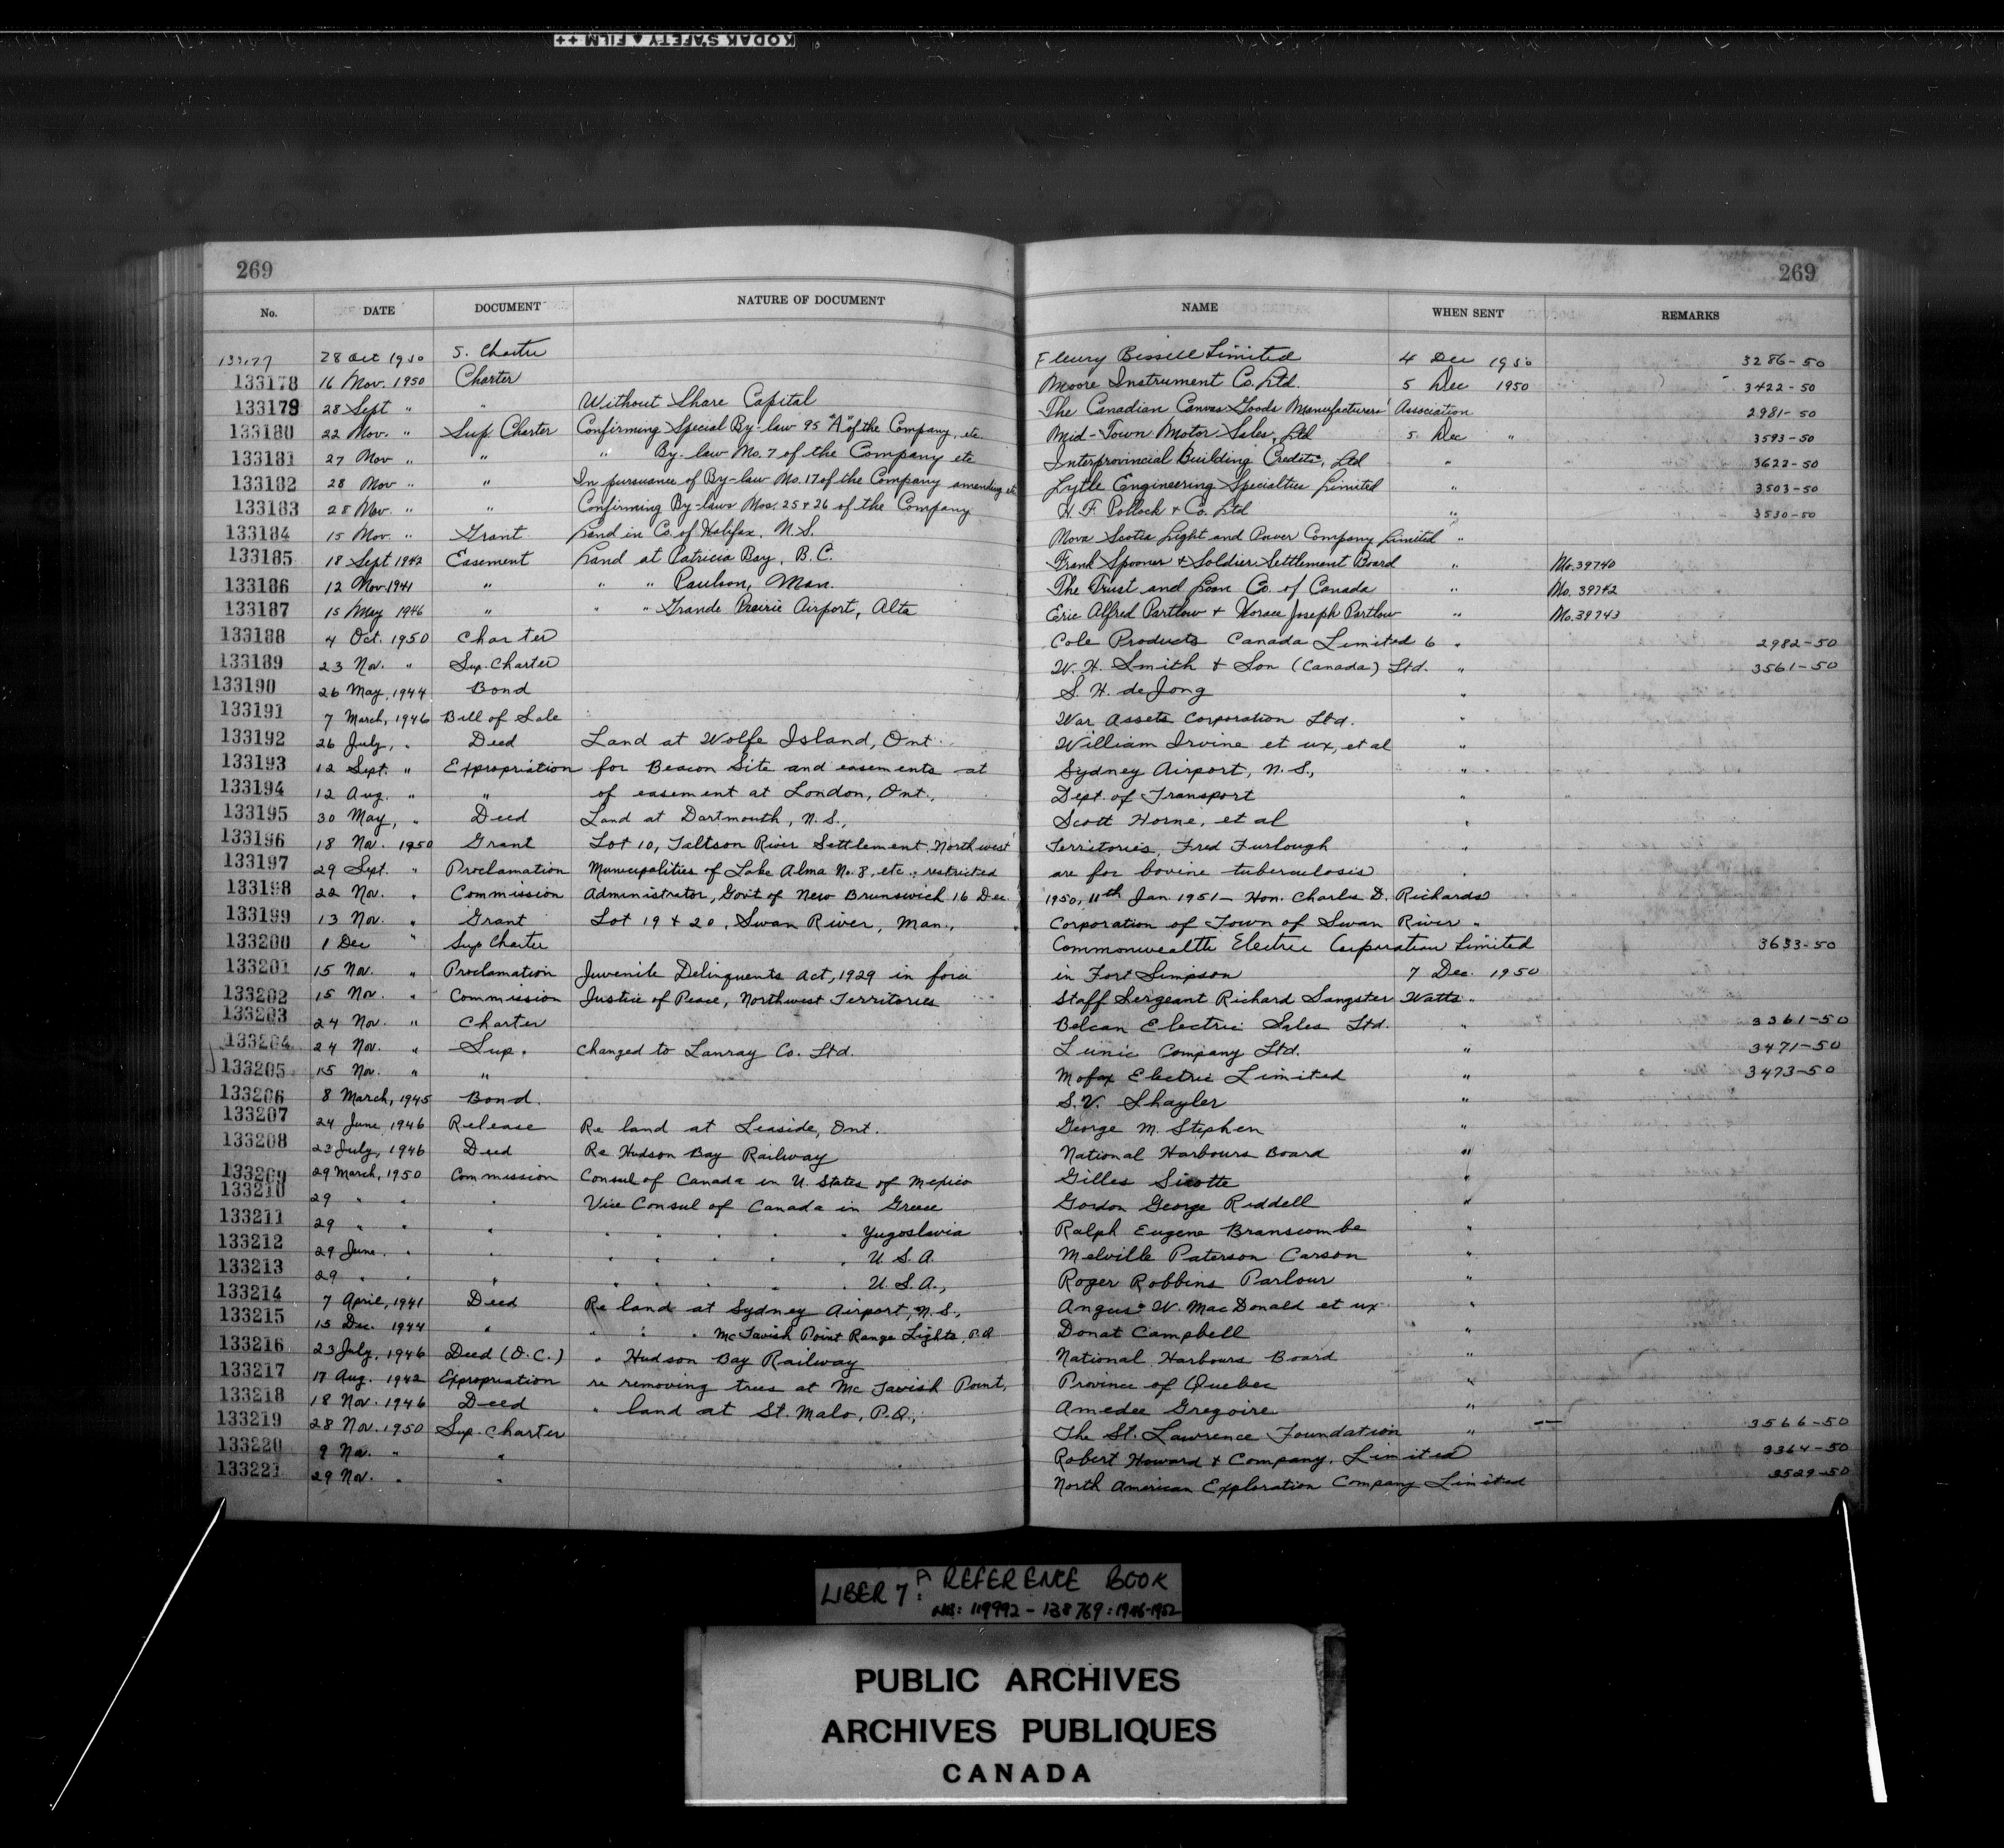 KODAK SAFETY FILM ++
269 269
No. DATE DOCUMENT NATURE OF DOCUMENT NAME WHEN SENT REMARKS
133177 28 Oct 1950 S. Charter Fleury Bissell Limited 4 Dec 1950 3286-50
133178 16 Nov. 1950 Charter Moore Instrument Co. Ltd. 5 Dec 1950 3422-50
133179 28 Sept " " Without Share Capital The Canadian Canvas Goods Manufacturers' Association 2981-50
133180 22 Nov. " Sup. Charter Confirming Special By-law 95 "A" of the Company, etc. Mid-Town Motor Sales, Ltd 5 Dec " 3593-50
133181 27 Nov " " " By-law No. 7 of the Company etc Interprovincial Building Credits, Ltd " 3622-50
133182 28 Nov " " In pursuance of By-law No. 17 of the Company amending etc Lytle Engineering Specialties Limited " 3503-50
133183 28 Nov. " " Confirming By-laws Nos. 25 + 26 of the Company H. F. Pollock + Co. Ltd " 3530-50
133184 15 Nov. " Grant Land in Co. of Halifax, N.S. Nova Scotia Light and Power Company Limited "
133185 18 Sept 1942 Easement Land at Patricia Bay, B.C. Frank Spooner + Soldier Settlement Board " No. 39740
133186 12 Nov 1941 " " " Paulson, Man. The Trust and Loan Co. of Canada " No. 39742
133187 15 May 1946 " " " Grande Prairie Airport, Alta Eric Alfred Partlow + Horace Joseph Partlow " No. 39743
133188 4 Oct. 1950 Charter Cole Products Canada Limited 6 " 2982-50
133189 23 Nov. " Sup. Charter W. H. Smith + Son (Canada) Ltd. " 3561-50
133190 26 May, 1944 Bond S. H. de Jong "
133191 7 March, 1946 Bill of Sale War Assets Corporation Ltd. "
133192 26 July, " Deed Land at Wolfe Island, Ont. William Irvine et ux, et al "
133193 12 Sept. " Expropriation for Beacon Site and easements at Sydney Airport, N.S., "
133194 12 Aug. " " of easement at London, Ont., Dept. of Transport "
133195 30 May, " Deed Land at Dartmouth, N.S., Scott Horne, et al "
133196 18 Nov. 1950 Grant Lot 10, Taltson River Settlement, Northwest Territories, Fred Furlough "
133197 29 Sept. " Proclamation Municipalities of Lake Alma No. 8, etc., restricted are for bovine tuberculosis "
133198 22 Nov. " Commission Administrator, Govt of New Brunswick 16 Dec. 1950, 11th Jan. 1951 - Hon. Charles D. Richards
133199 13 Nov. " Grant Lot 19 + 20, Swan River, Man., Corporation of Town of Swan River "
133200 1 Dec " Sup Charter Commonwealth Electric Corporation Limited 3633-50
133201 15 Nov. " Proclamation Juvenile Delinquents Act, 1929 in force in Fort Simpson 7 Dec. 1950
133202 15 Nov. " Commission Justice of Peace, Northwest Territories Staff Sergeant Richard Sangster Watts "
133203 24 Nov. " Charter Belcan Electric Sales Ltd. " 3361-50
133204 24 Nov. " Sup. Changed to Lanray Co. Ltd. Company Ltd. " 3471-50
133205 15 Nov. " " Mofax Electric Limited " 3473-50
133206 8 March, 1945 Bond. S. V. Shayler "
133207 24 June 1946 Release Re land at Leaside, Ont. George M. Stephen "
133208 23 July, 1946 Deed Re Hudson Bay Railway National Harbours Board "
133209 29 March, 1950 Commission Consul of Canada in U. States of Mexico Gilles Sicotte "
133210 29 " " " Vice Consul of Canada in Greece Gordon George Riddell "
133211 29 " " " " " " " " Yugoslavia Ralph Eugene Branscombe "
133212 29 June " " " " " " " U.S.A. Melville Paterson Carson "
133213 29 " " " " " " " " U.S.A., Roger Robbins Parlour "
133214 7 April, 1941 Deed Re land at Sydney Airport, N.S., Angus W. MacDonald et ux "
133215 15 Dec. 1944 " " " " McTavish Point Range Lights, P.Q. Donat Campbell "
133216 23 July, 1946 Deed (O.C.) " Hudson Bay Railway National Harbours Board "
133217 17 Aug. 1942 Expropriation re removing trees at McTavish Point, Province of Quebec "
133218 18 Nov. 1946 Deed " land at St. Malo, P.Q., Amedee Gregoire "
133219 28 Nov. 1950 Sup. Charter The St. Lawrence Foundation " 3566-50
133220 9 Nov. " " Robert Howard + Company, Limited 3364-50
133221 29 Nov. " " North American Exploration Company Limited 3529-50
LIBER 7A: REFERENCE BOOK
NOS: 119992 - 138769: 1946-1952
PUBLIC ARCHIVES
ARCHIVES PUBLIQUES
CANADA